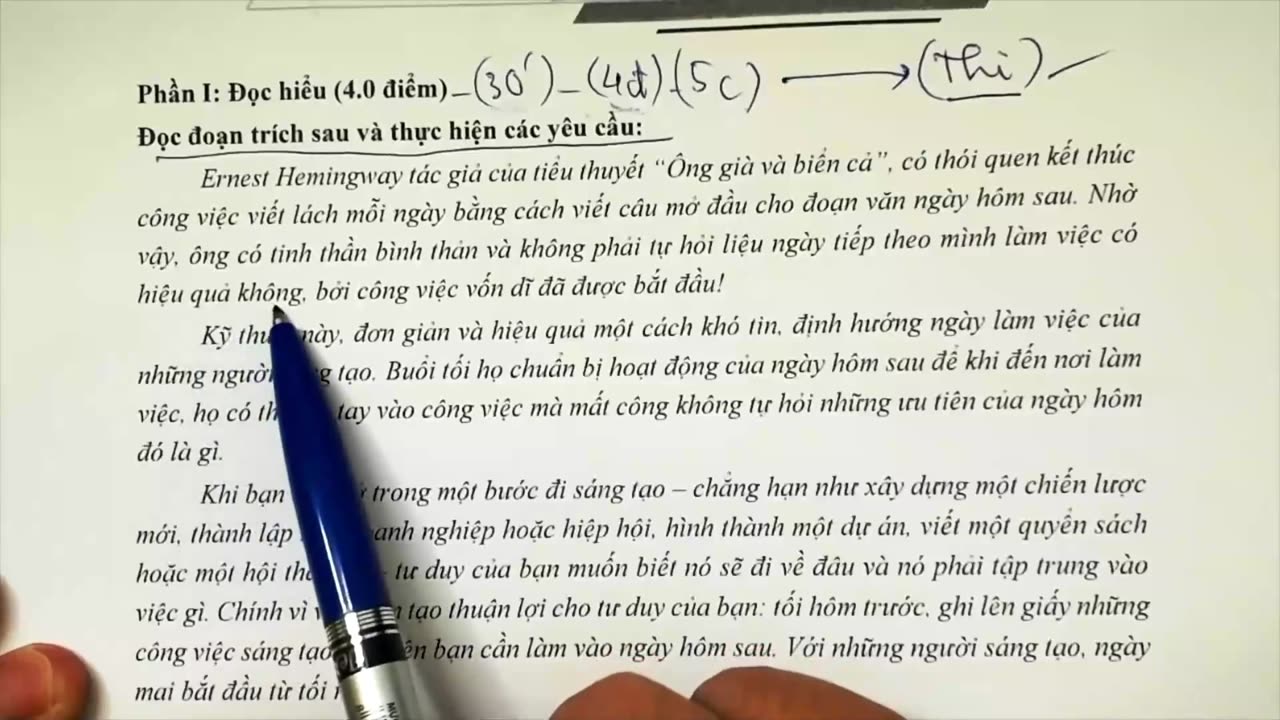 Phần I: Đọc hiểu (4.0 điểm) – (30') – (4đ) (5c) → (Thi)
Đọc đoạn trích sau và thực hiện các yêu cầu:
Ernest Hemingway tác giả của tiểu thuyết “Ông già và biển cả”, có thói quen kết thúc
công việc viết lách mỗi ngày bằng cách viết câu mở đầu cho đoạn văn ngày hôm sau. Nhờ
vậy, ông có tinh thần bình thản và không phải tự hỏi liệu ngày tiếp theo mình làm việc có
hiệu quả không, bởi công việc vốn dĩ đã được bắt đầu!
Kỹ này, đơn giản và hiệu quả một cách khó tin, định hướng ngày làm việc của
những người tạo. Buổi tối họ chuẩn bị hoạt động của ngày hôm sau để khi đến nơi làm
việc, họ có tay vào công việc mà mất công không tự hỏi những ưu tiên của ngày hôm
đó là gì.
Khi bạn trong một bước đi sáng tạo – chẳng hạn như xây dựng một chiến lược
mới, thành lập nghiệp hoặc hiệp hội, hình thành một dự án, viết một quyển sách
hoặc một hội tư duy của bạn muốn biết nó sẽ đi về đâu và nó phải tập trung vào
việc gì. Chính vì tạo thuận lợi cho tư duy của bạn: tối hôm trước, ghi lên giấy những
công việc sáng bạn cần làm vào ngày hôm sau. Với những người sáng tạo, ngày
mai bắt đầu từ tối